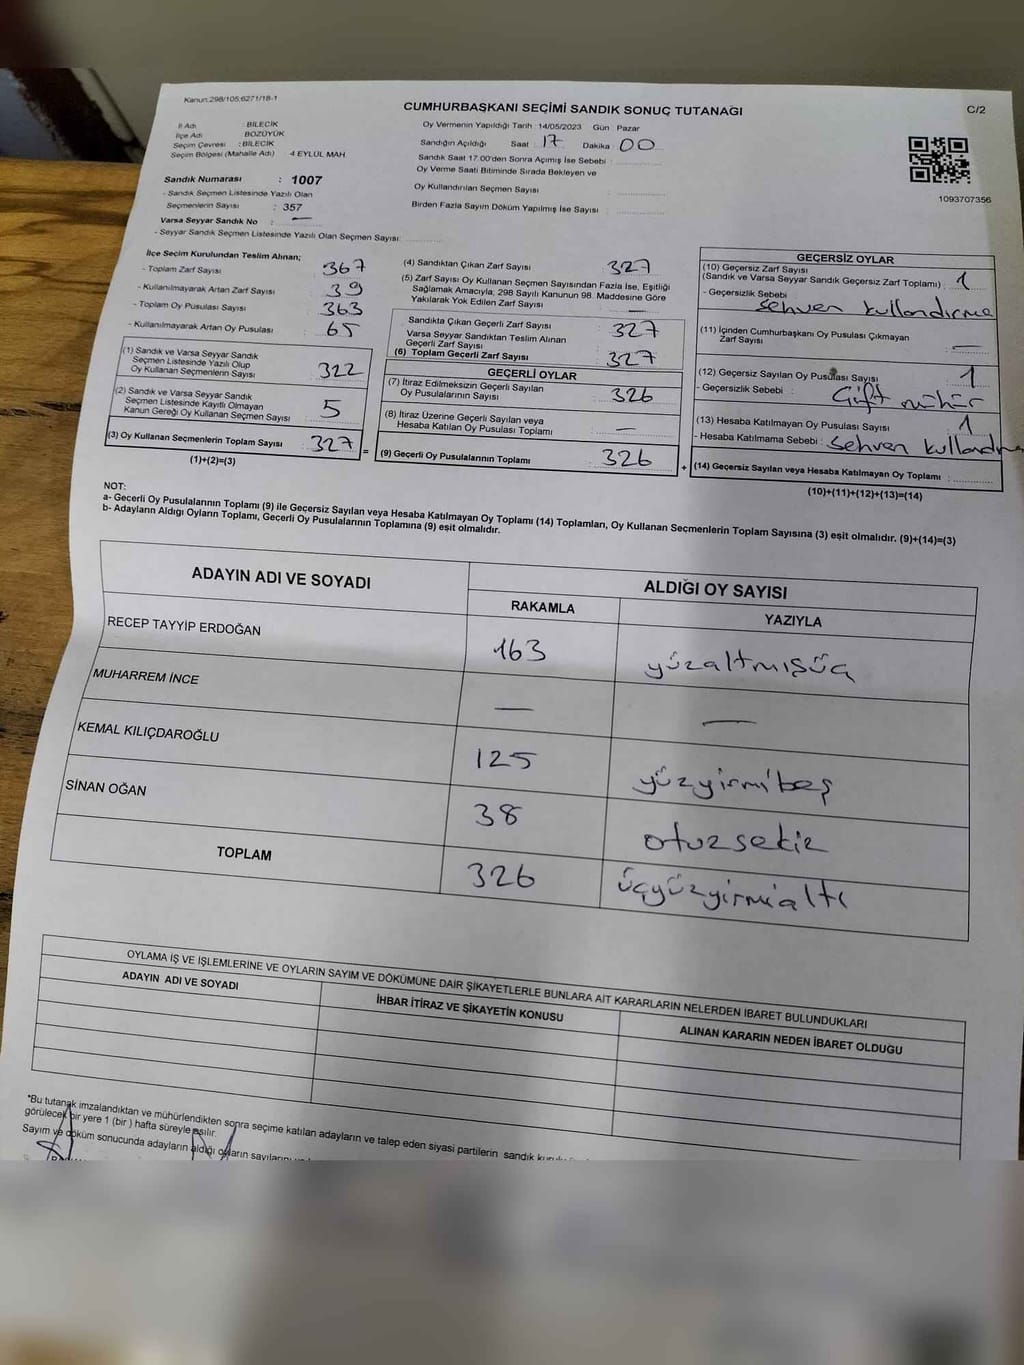 Kanun:298/105;6271/18-1
CUMHURBAŞKANI SEÇİMİ SANDIK SONUÇ TUTANAĞI
C/2
İl Adı : BİLECİK
İlçe Adı : BOZÜYÜK
Seçim Çevresi : BİLECİK
Seçim Bölgesi (Mahalle Adı) 4 EYLÜL MAH.
Sandık Numarası : 1007
- Sandık Seçmen Listesinde Yazılı Olan
Seçmenlerin Sayısı : 357
Varsa Seyyar Sandık No : —
- Seyyar Sandık Seçmen Listesinde Yazılı Olan Seçmen Sayısı:
Oy Vermenin Yapıldığı Tarih : 14/05/2023 Gün Pazar
Sandığın Açıldığı Saat 17 Dakika 00
Sandık Saat 17.00'den Sonra Açımış İse Sebebi :
Oy Verme Saati Bitiminde Sırada Bekleyen ve
Oy Kullandırılan Seçmen Sayısı :
Birden Fazla Sayım Döküm Yapılmış İse Sayısı :
1093707356
İlçe Seçim Kurulundan Teslim Alınan;
- Toplam Zarf Sayısı : 367
- Kullanılmayarak Artan Zarf Sayısı : 39
- Toplam Oy Pusulası Sayısı : 363
- Kullanılmayarak Artan Oy Pusulası : 65
(1) Sandık ve Varsa Seyyar Sandık
Seçmen Listesinde Yazılı Olup
Oy Kullanan Seçmenlerin Sayısı : 322
(2) Sandık ve Varsa Seyyar Sandık
Seçmen Listesinde Kayıtlı Olmayan
Kanun Gereği Oy Kullanan Seçmen Sayısı : 5
(3) Oy Kullanan Seçmenlerin Toplam Sayısı : 327
(1)+(2)=(3)
(4) Sandıktan Çıkan Zarf Sayısı : 327
(5) Zarf Sayısı Oy Kullanan Seçmen Sayısından Fazla İse, Eşitliği
Sağlamak Amacıyla, 298 Sayılı Kanunun 98. Maddesine Göre
Yakılarak Yok Edilen Zarf Sayısı : —
Sandıkta Çıkan Geçerli Zarf Sayısı : 327
Varsa Seyyar Sandıktan Teslim Alınan
Geçerli Zarf Sayısı :
(6) Toplam Geçerli Zarf Sayısı : 327
GEÇERLİ OYLAR
(7) İtiraz Edilmeksizin Geçerli Sayılan
Oy Pusulalarının Sayısı : 326
(8) İtiraz Üzerine Geçerli Sayılan veya
Hesaba Katılan Oy Pusulası Toplamı : —
(9) Geçerli Oy Pusulalarının Toplamı : 326
GEÇERSİZ OYLAR
(10) Geçersiz Zarf Sayısı
(Sandık ve Varsa Seyyar Sandık Geçersiz Zarf Toplamı) : 1
- Geçersizlik Sebebi : Sehven kullandırma
(11) İçinden Cumhurbaşkanı Oy Pusulası Çıkmayan
Zarf Sayısı : —
(12) Geçersiz Sayılan Oy Pusulası Sayısı : 1
- Geçersizlik Sebebi : Çift mühür
(13) Hesaba Katılmayan Oy Pusulası Sayısı : 1
- Hesaba Katılmama Sebebi : Sehven kullandırma
(14) Geçersiz Sayılan veya Hesaba Katılmayan Oy Toplamı :
(10)+(11)+(12)+(13)=(14)
NOT:
a- Geçerli Oy Pusulalarının Toplamı (9) ile Geçersiz Sayılan veya Hesaba Katılmayan Oy Toplamı (14) Toplamları, Oy Kullanan Seçmenlerin Toplam Sayısına (3) eşit olmalıdır. (9)+(14)=(3)
b- Adayların Aldığı Oyların Toplamı, Geçerli Oy Pusulalarının Toplamına (9) eşit olmalıdır.
ADAYIN ADI VE SOYADI
ALDIĞI OY SAYISI
RAKAMLA YAZIYLA
RECEP TAYYİP ERDOĞAN 163 yüzaltmışüç
MUHARREM İNCE — —
KEMAL KILIÇDAROĞLU 125 yüzyirmibeş
SİNAN OĞAN 38 otuzsekiz
TOPLAM 326 üçyüzyirmialtı
OYLAMA İŞ VE İŞLEMLERİNE VE OYLARIN SAYIM VE DÖKÜMÜNE DAİR ŞİKAYETLERLE BUNLARA AİT KARARLARIN NELERDEN İBARET BULUNDUKLARI
ADAYIN ADI VE SOYADI
İHBAR İTİRAZ VE ŞİKAYETİN KONUSU
ALINAN KARARIN NEDEN İBARET OLDUĞU
*Bu tutanak imzalandıktan ve mühürlendikten sonra seçime katılan adayların ve talep eden siyasi partilerin sandık
görülecek bir yere 1 (bir) hafta süreyle asılır.
Sayım ve döküm sonucunda adayların aldığı oyların sayılarını